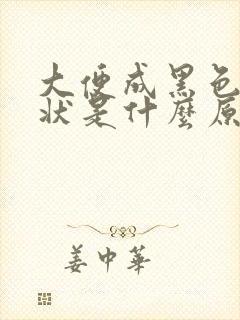 大便成黑色
状是什麼原
姜中華